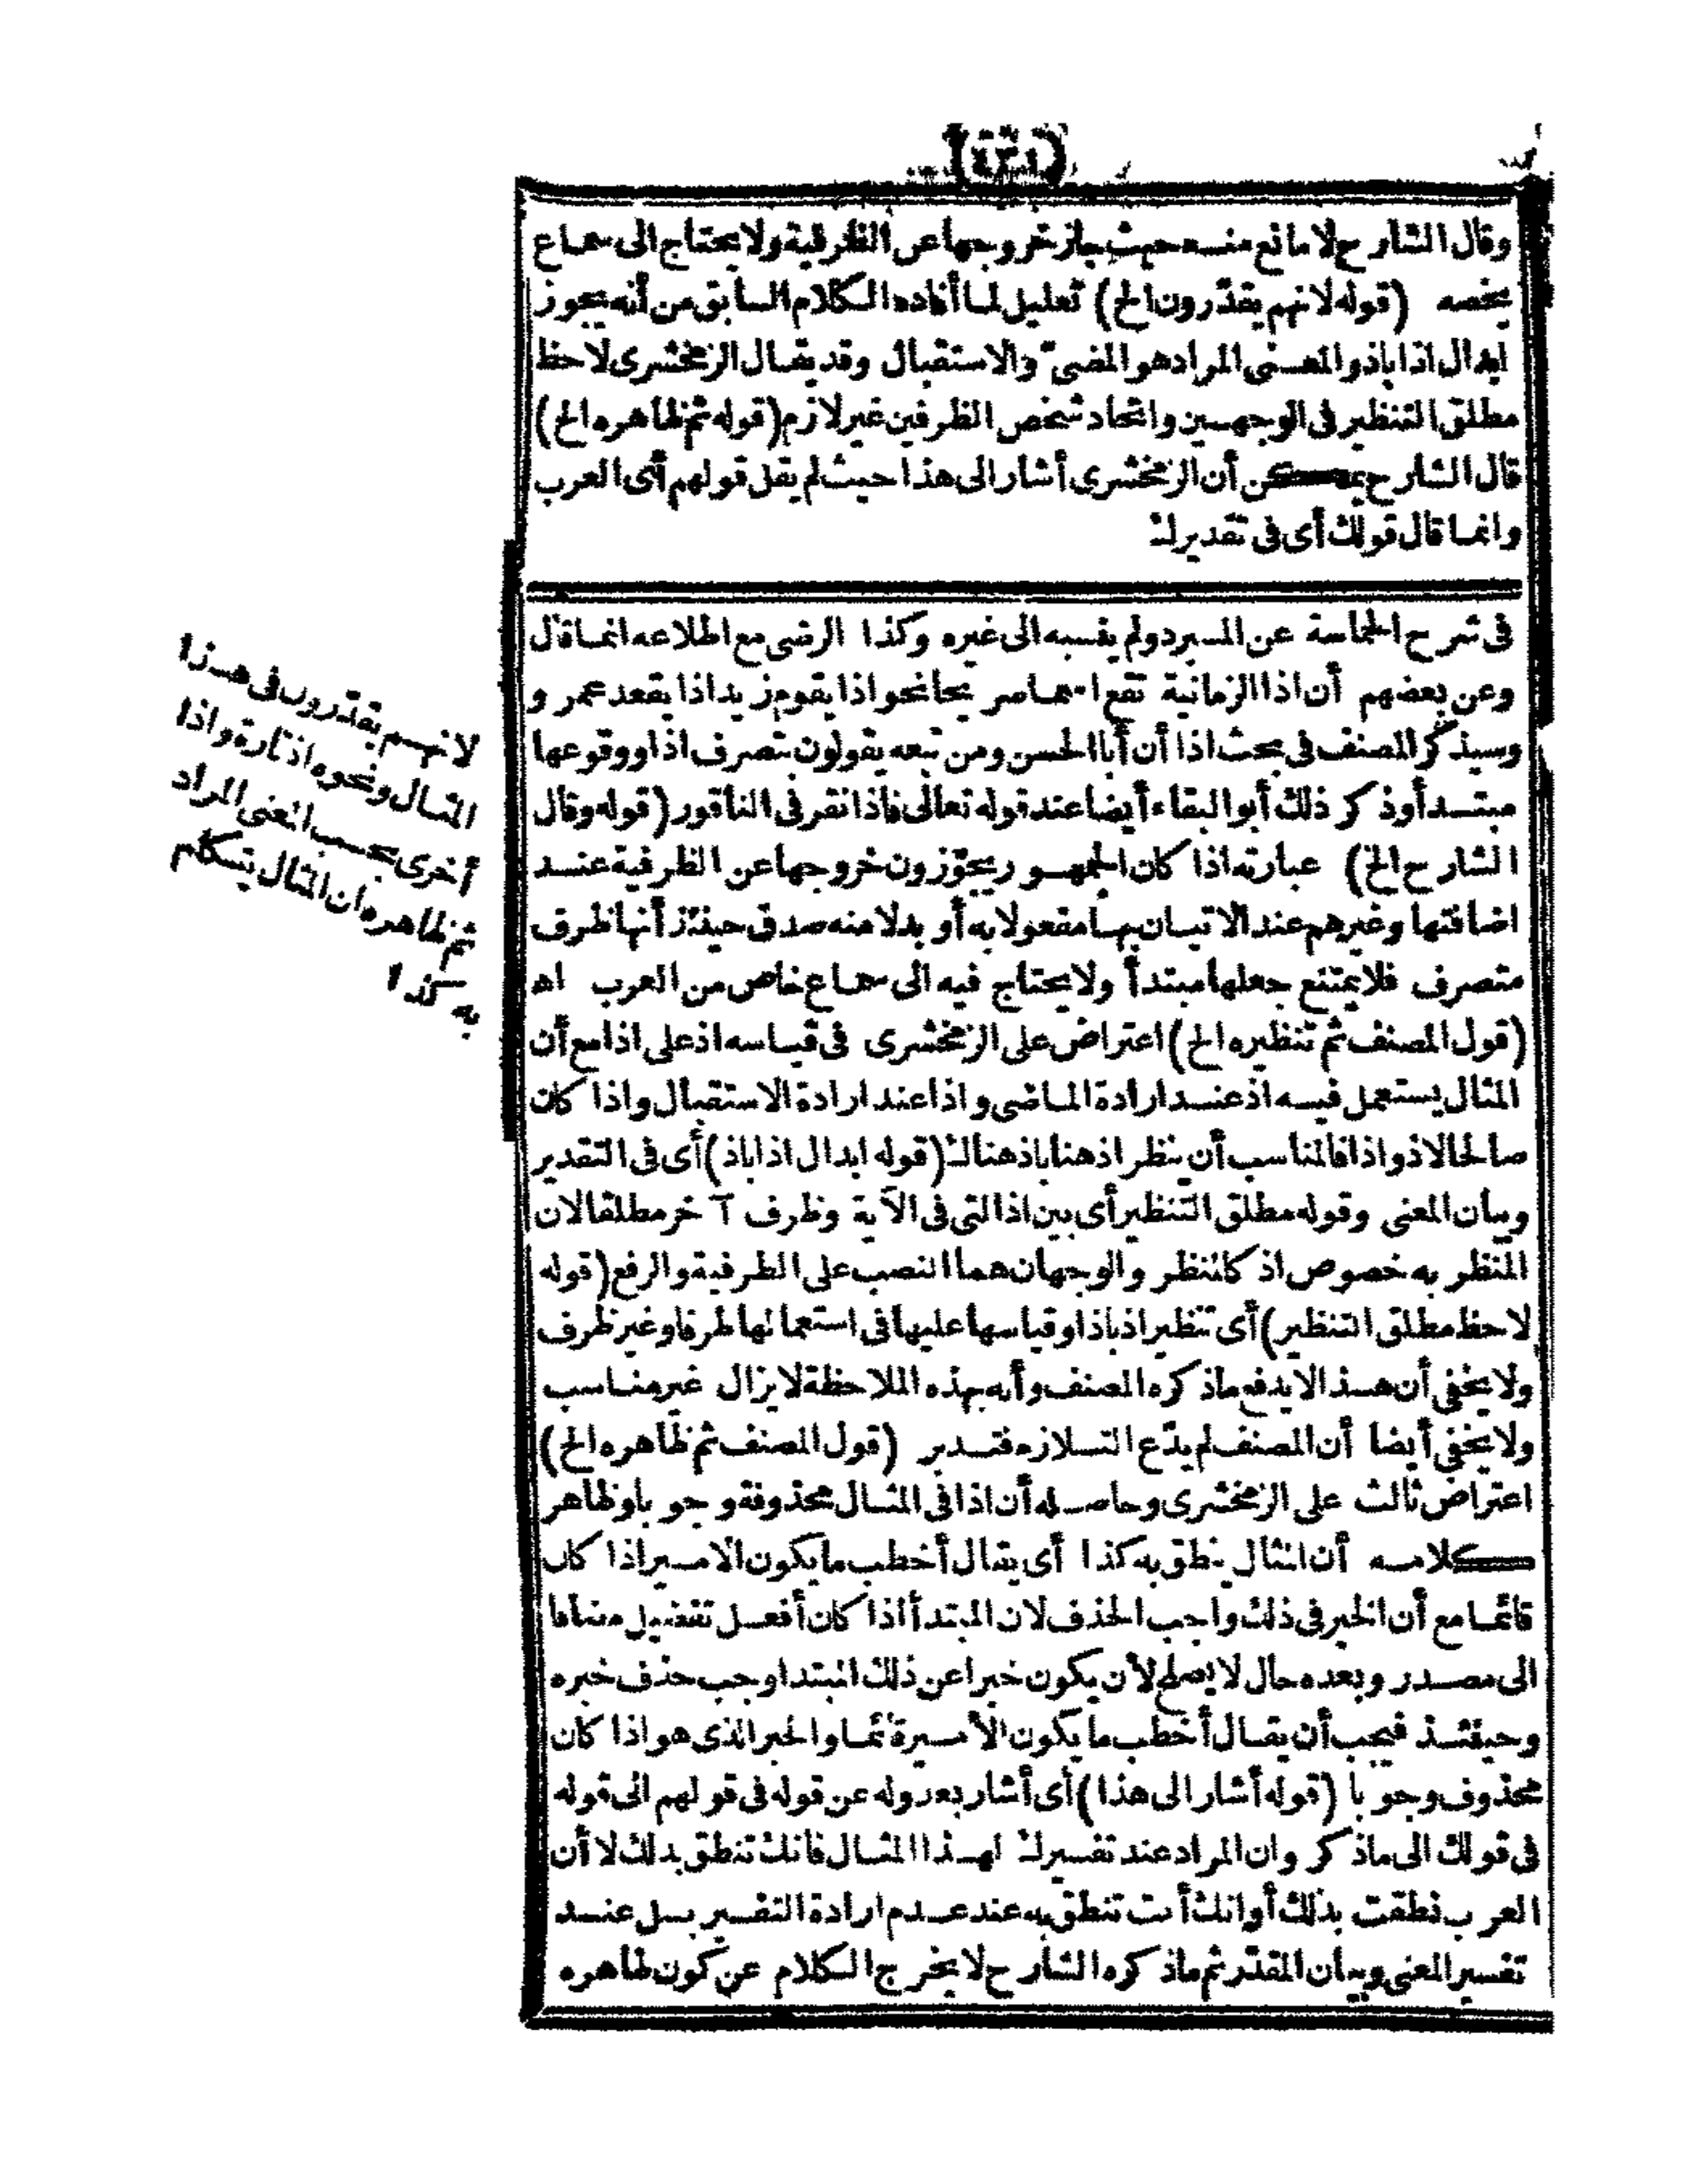 وقال الشارح لا مانع منه حيث جاز خروجها عن الظرفية ولا يحتاج الى سماع
يخصه (قوله لانهم يقدّرون الخ) تعليل لما أفاده الكلام السابق من أنه يجوز
ابدال اذا باذ والمعنى المراد هو المضىّ والاستقبال وقد يقال الزمخشرى لاحظ
مطلق التنظير فى الوجهين واتحاد شخص الظرفين غير لازم (قوله ثم ظاهره الخ)
قال الشارح يمكن أن الزمخشرى أشار الى هذا حيث لم يقل قولهم أى العرب
وانما قال قولك أى فى تقديرك
فى شرح الحماسة عن المبرد ولم ينسبه الى غيره وكذا الرضى مع اطلاعه انما قال
وعن بعضهم أن اذا الزمانية تقع اسما صريحا نحو اذا يقوم زيد اذا يقعد عمرو
وسيذكر المصنف فى بحث اذا أن أبا الحسن ومن تبعه يقولون بتصرف اذا ووقوعها
مبتدأ وذكر ذلك أبو البقاء أيضا عند قوله تعالى فاذا نقر فى الناقور (قوله وقال
الشارح الخ) عبارته اذا كان الجمهور يجوّزون خروجها عن الظرفية عند
اضافتها وغيرهم عند الاتيان بها مفعولا به أو بدلا منه صدق حينئذ أنها ظرف
متصرف فلا يمتنع جعلها مبتدأ ولا يحتاج فيه الى سماع خاص من العرب اه
(قول المصنف ثم تنظيره الخ) اعتراض على الزمخشرى فى قياسه اذ على اذا مع أن
المثال يستعمل فيه اذ عند ارادة الماضى واذا عند ارادة الاستقبال واذا كان
صالحا لاذ واذا فالمناسب أن ينظر اذ هنا باذ هناك (قوله ابدال اذا باذ) أى فى التقدير
وبيان المعنى وقوله مطلق التنظير أى بين اذ التى فى الآية وظرف آخر مطلقا لان
المنظر به خصوص اذ كالمنظر والوجهان هما النصب على الظرفية والرفع (قوله
لاحظ مطلق التنظير) أى تنظير اذ باذا وقياسها عليها فى استعمالها ظرفا وغير ظرف
ولا يخفى أن هذا لا يدفع ماذكره المصنف وأنه بهذه الملاحظة لا يزال غير مناسب
ولا يخفى أيضا أن المصنف لم يدّع التلازم فتدبر (قول المصنف ثم ظاهره الخ)
اعتراض ثالث على الزمخشرى وحاصله أن اذا فى المثال محذوفة وجوبا وظاهر
كلامه أن المثال ينطق به كذا أى يقال أخطب ما يكون الامير اذا كان
قائما مع أن الخبر فى ذلك واجب الحذف لان المبتدأ اذا كان أفعل تفضيل مضافا
الى مصدر وبعده حال لا يصلح لأن يكون خبرا عن ذلك المبتدا وجب حذف خبره
وحينئذ فيجب أن يقال أخطب ما يكون الأمير قائما والخبر الذى هو اذا كان
محذوف وجوبا (قوله أشار الى هذا) أى أشار بعدوله عن قوله فى قولهم الى قوله
فى قولك الى ماذكر وان المراد عند تفسيرك لهذا المثال فانك تنطق بذلك لا أن
العرب نطقت بذلك أو انك أنت تنطق به عند عدم ارادة التفسير بل عند
تفسير المعنى وبيان المقدّر ثم ماذكره الشارح لا يخرج الكلام عن كون ظاهره
لانهم يقدّرون فى هذا
المثال ونحوه اذ تارة واذا
أخرى بحسب المعنى المراد
ثم ظاهره ان المثال يتكلم
به كذا